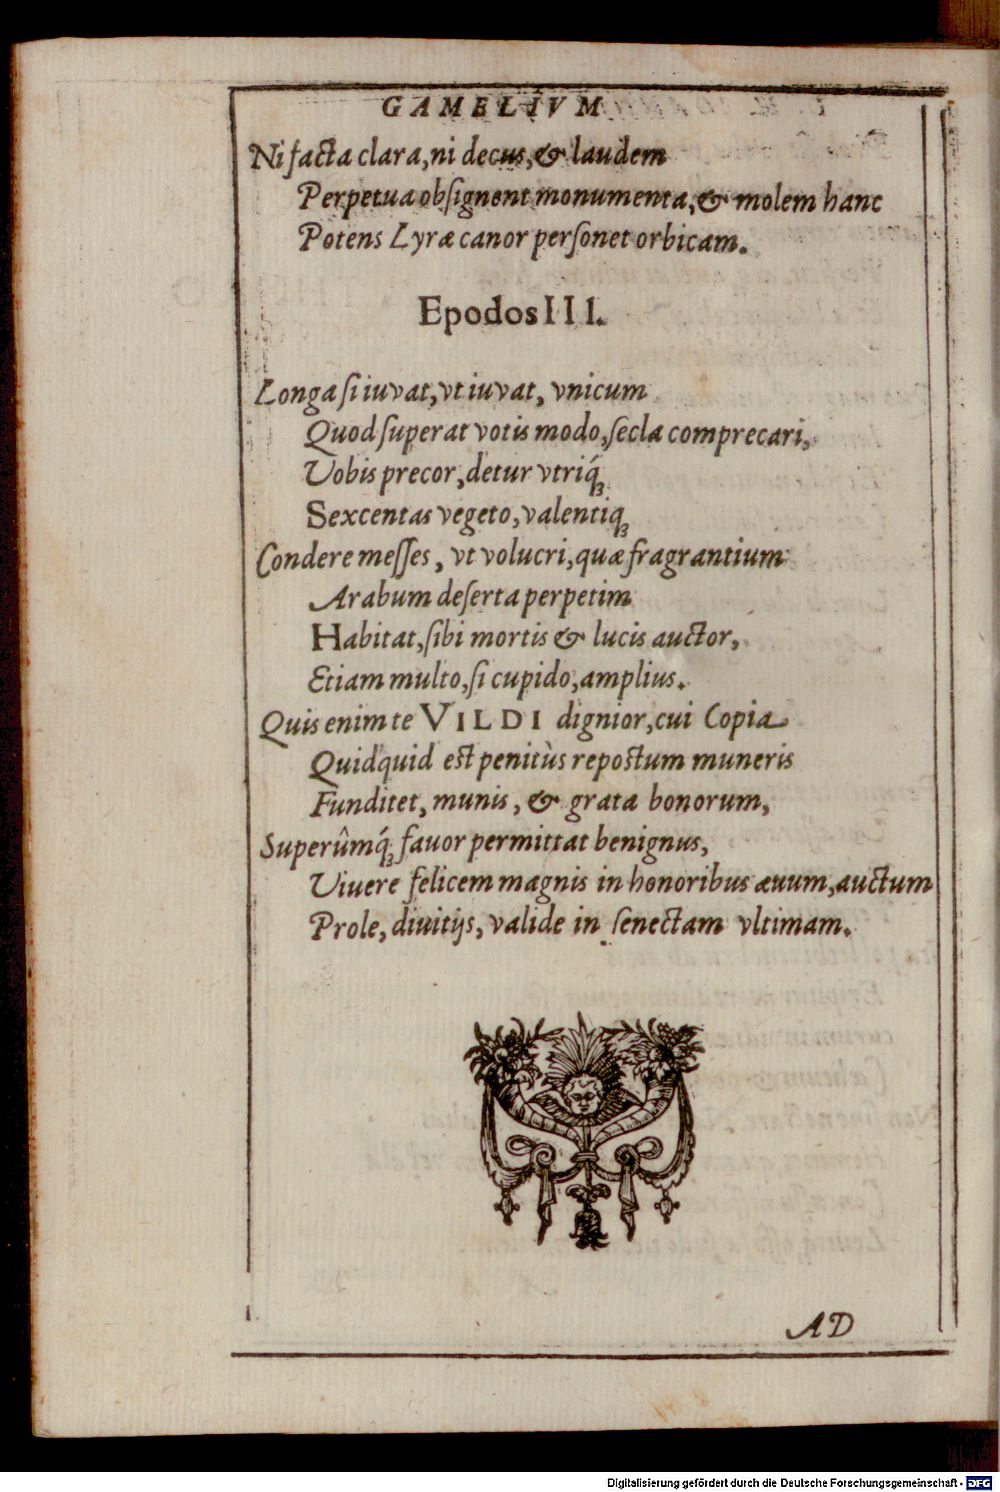 GAMELIVM
Ni facta clara, ni decus, & laudem
Perpetua obſignent monumenta, & molem hanc
Potens Lyræ canor perſonet orbicam.
Epodos III.
Longa ſi iuvat, vt iuvat, vnicum
Quod ſuperat votis modo, ſecla comprecari,
Vobis precor, detur vtriq́ꝫ
Sexcentas vegeto, valentiqꝫ
Condere meſſes, vt volucri, quæ fragrantium
Arabum deſerta perpetim
Habitat, ſibi mortis & lucis auctor,
Etiam multo, ſi cupido, amplius.
Quis enim te VILDI dignior, cui Copia
Quidquid eſt penitùs repoſtum muneris
Funditet, munis, & grata bonorum,
Superûmq́ꝫ favor permittat benignus,
Viuere felicem magnis in honoribus æuum, auctum
Prole, diuitijs, valide in ſenectam vltimam.
AD
Digitalisierung gefördert durch die Deutsche Forschungsgemeinschaft - DFG